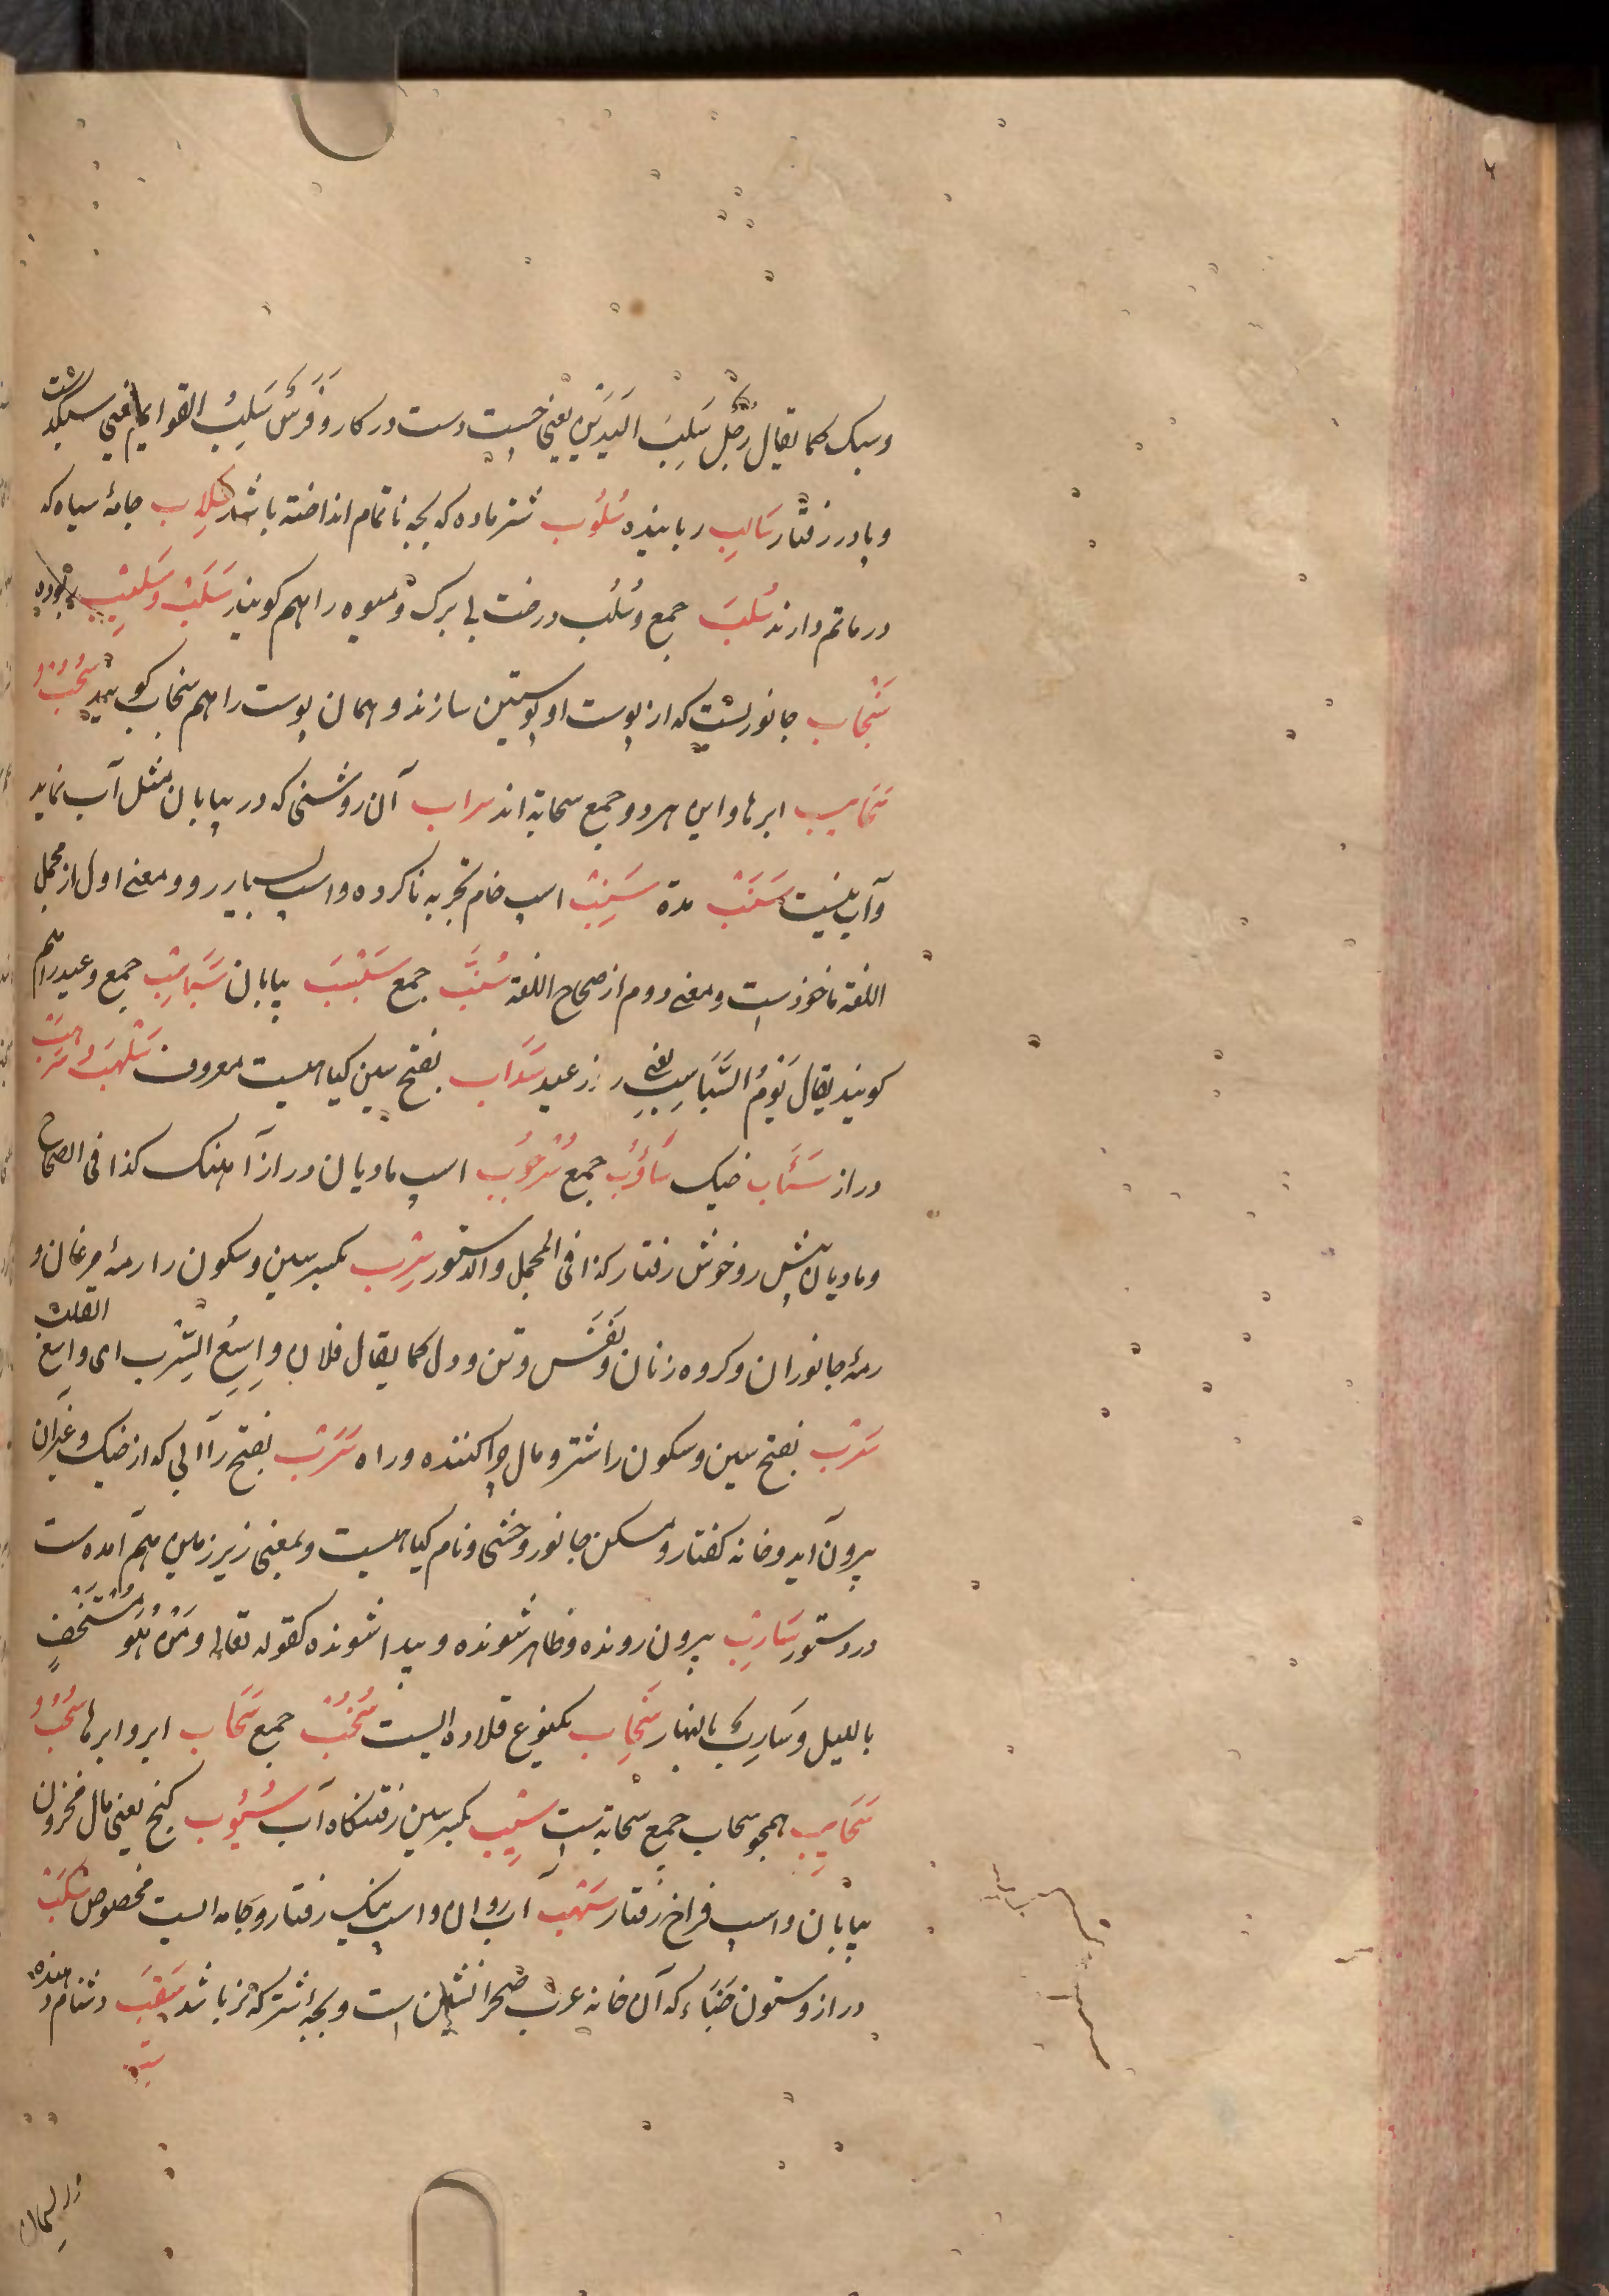 وسبک کما یقال رَجُلٌ سَلِبُ الیَدَیْنِ یعنی چست دست در کار و فَرَسٌ سَلِبُ القوایم یعنی سبکدست
و پا در رفتار سَالِب رباینده سَلُوب شتر ماده که بچه ناتمام انداخته باشد سِلاب جامۀ سیاه که
در ماتم دارند سُلُبٌ جمع و سُلُب درخت بی برک و میوه را هم کویند سَلَبْ و سَلِیْب ربوده
سَنْجاب جانوریست که از پوست او پوستین سازند و همان پوست را هم سنجاب کویند سُحُبْ و
سَحَایِب ابرها و این هر دو جمع سحابة اند سراب آن روشنی که در بیابان مثل آب نماید
و آب نیست سَنَبْ مدة سَنِبْ اسپ خام تجربه ناکرده و اسپ بسیار رو و معنی اول از مجمل
اللغة ماخوذست و معنی دوم از صحاح اللغة سُنُبٌ جمع سَبْسَبْ بیابان سَبَاسِبْ جمع و عید را هم
کویند یقال یَوْمُ السَّبَاسِبِ یعنی روز عید سَدَاب بفتح سین کیاهیست معروف سَلْهَبْ و سَرْهَبْ
دراز سَأْب خیک سُؤُبْ جمع سُرْحُوب اسپ مادیان دراز آهنک کذا فی الصحاح
و مادیان پیش رو خوش رفتار کذا فی المجمل والدستور سِرْب بکسر سین و سکون را رمۀ مرغان و
رمۀ جانوران و کروه زنان و نَفَس و تن و دل کما یقال فلان واسِعُ السِّرْب ای واسع القلب
سَرْب بفتح سین و سکون را شتر و مال چرا کننده و راه سَرَبْ بفتح را آبی که از خیک و غیر آن
بیرون آید و خانه کفتار و مسکن جانور وحشی و نام کیاهیست و بمعنی زیر زمین هم آمده ست
در دستور سَارِبْ بیرون رونده و ظاهر شونده و پیدا شونده کقوله تعالی وَمَنْ هُوَ مُسْتَخْفٍ
باللیل وَسَارِبٌ بالنهار سِخَاب یکنوع قلاده ایست سُخُبْ جمع سَحَاب ابر و ابرها سُحُبْ و
سَحَایِب همچو سحاب جمع سحابة است سِیْب بکسر سین رفتنکاه آب سُیُوب کنج یعنی مال مخزون
بیابان و اسپ فراخ رفتار سَکْبْ آب روان و اسپ نیک رفتار و جامه ایست مخصوص سَقَبْ
دراز و ستون خِبَاء که آن خانه عرب صحرانشین است و بچه شتر که نر باشد سَبَبْ دشنام دهنده